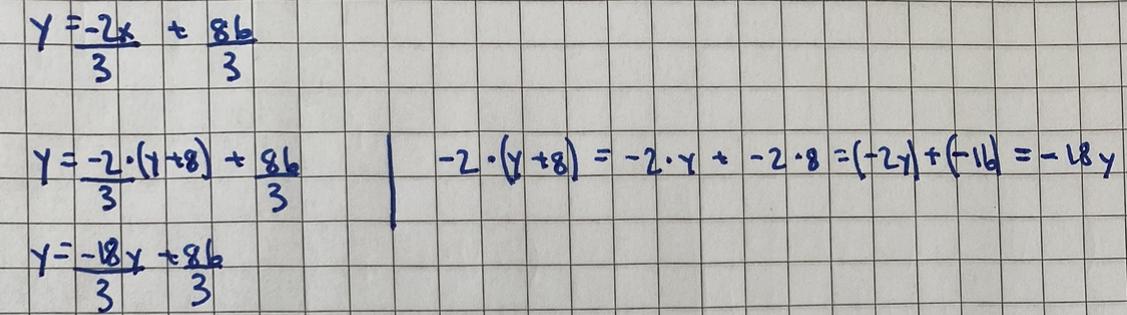 y = -2x/3 + 86/3
y = -2·(y+8)/3 + 86/3 | -2·(y+8) = -2·y + -2·8 = (-2y)+(-16) = -18y
y = -18y/3 + 86/3